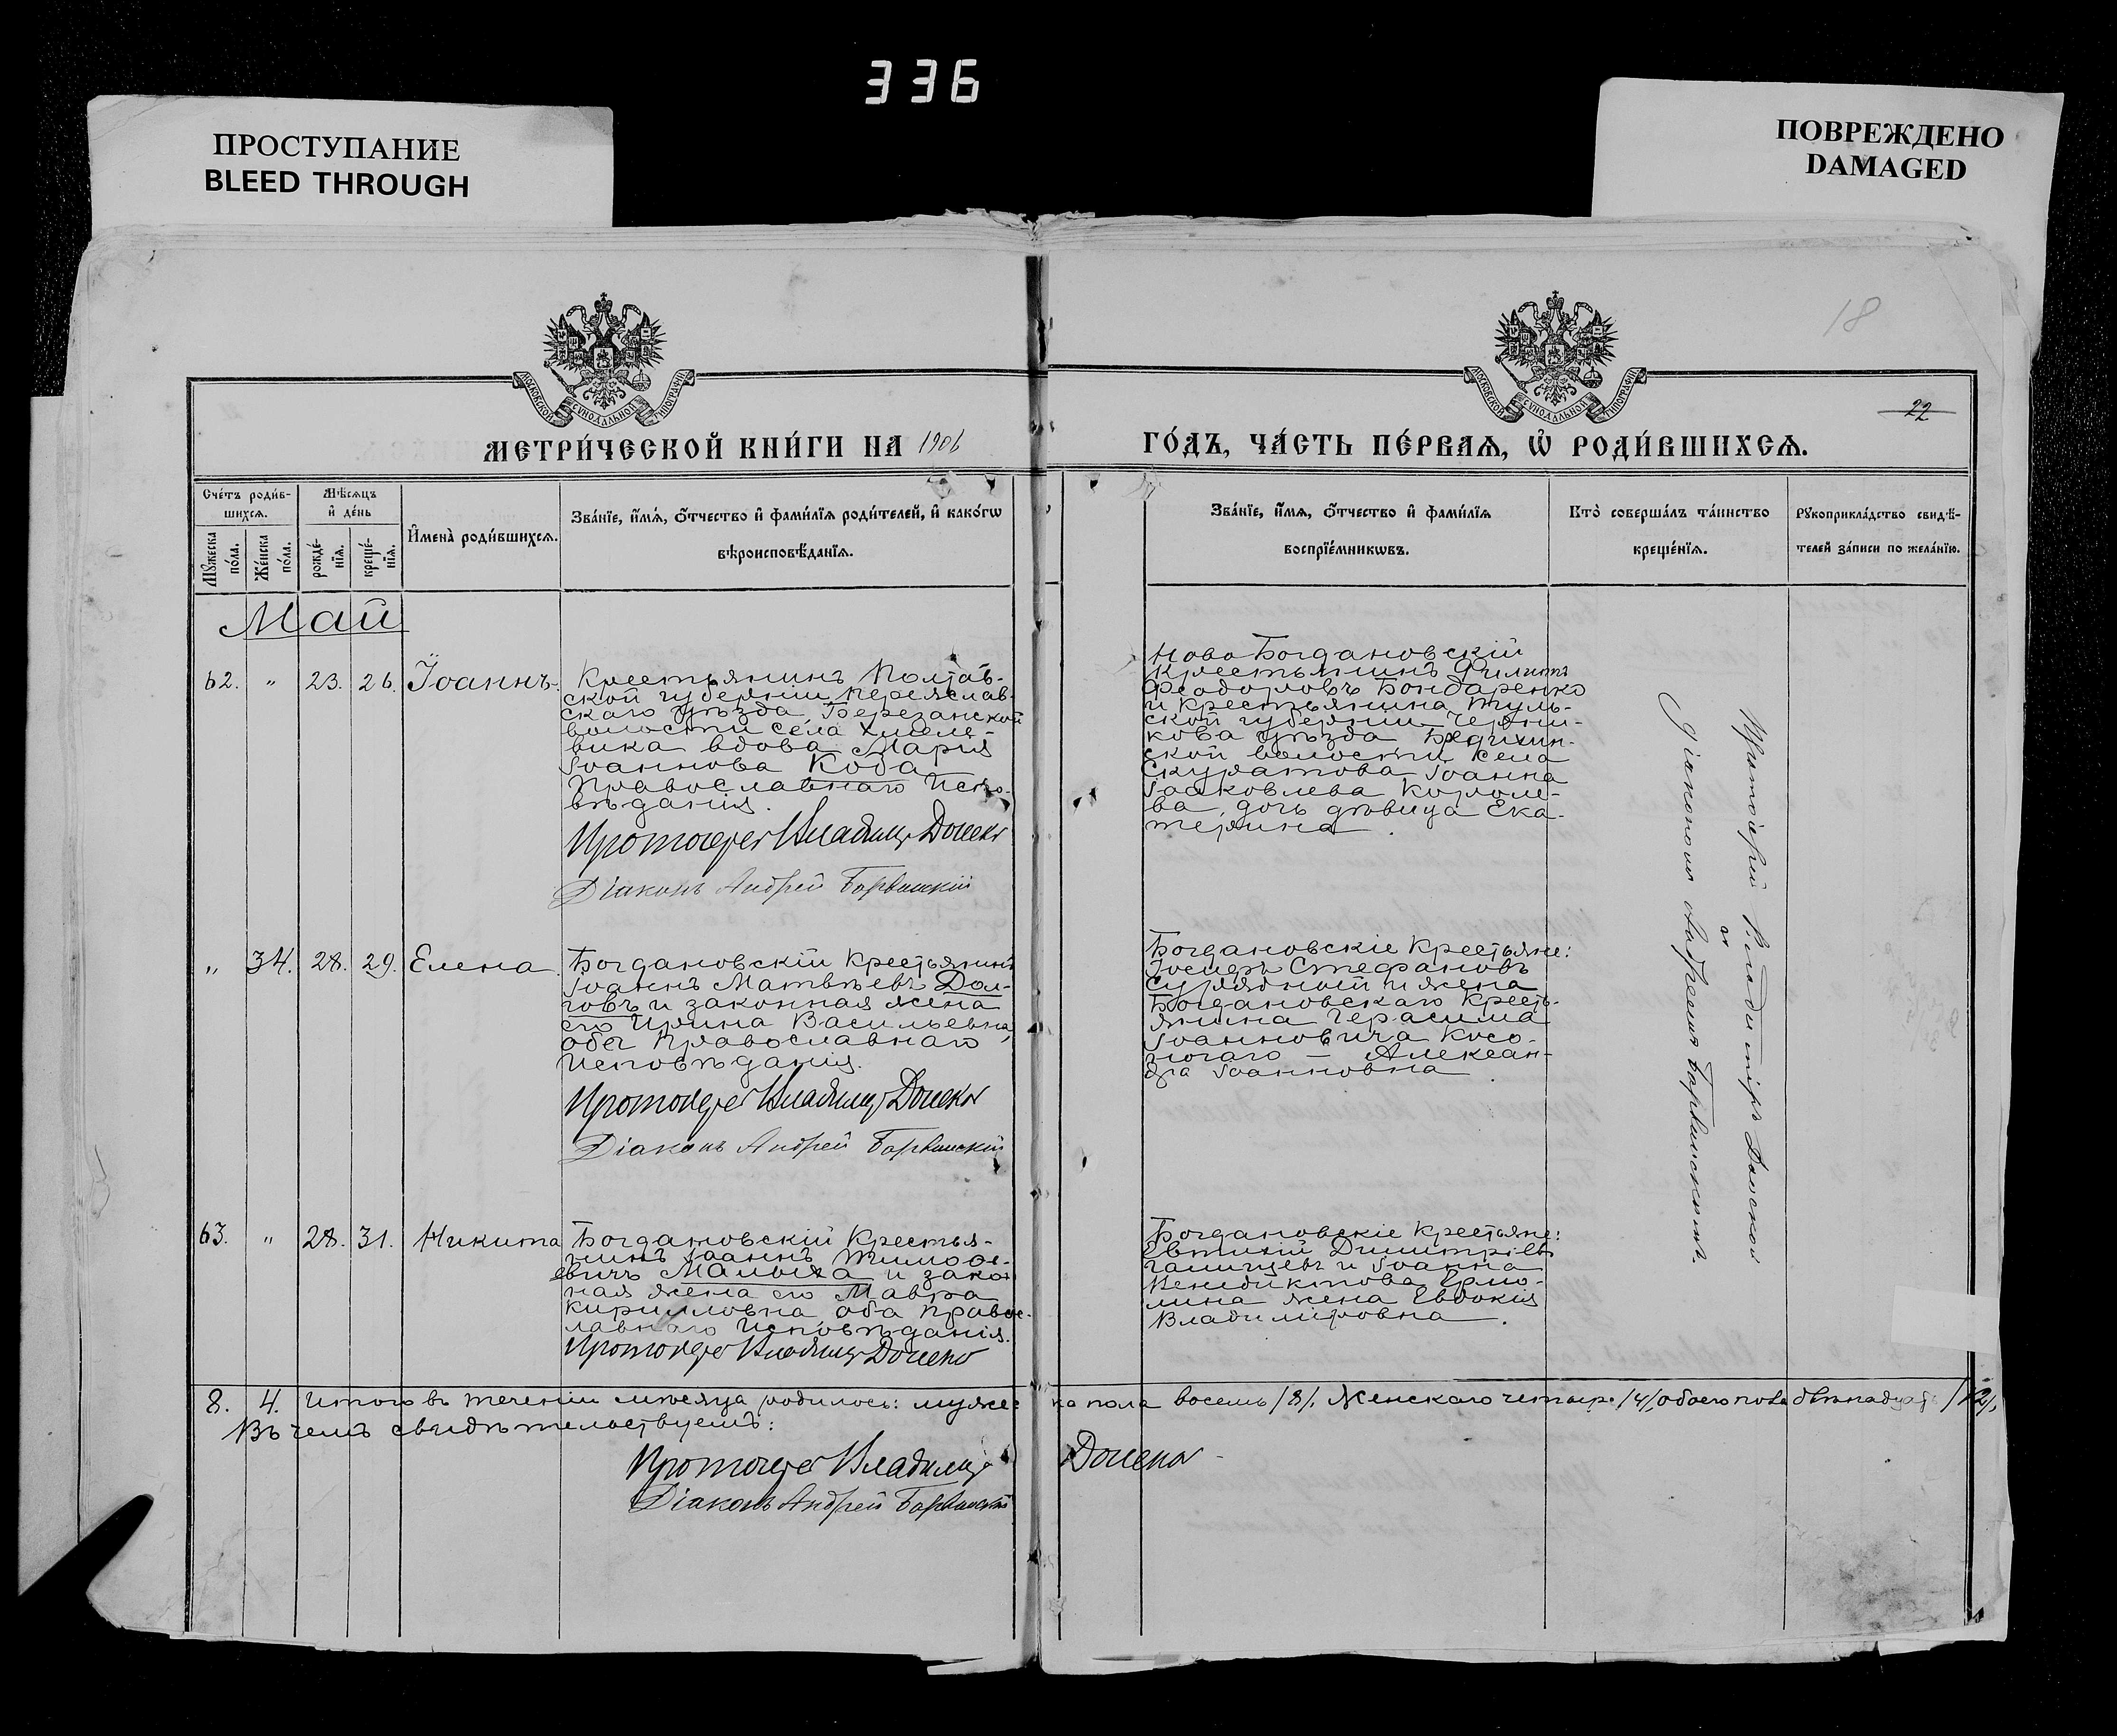 336
ПРОСТУПАНИЕ
BLEED THROUGH
ПОВРЕЖДЕНО
DAMAGED
18
22
МОСКОВСКОЙ СѴНОДАЛЬНОЙ ТИПОГРАФІИ
МОСКОВСКОЙ СѴНОДАЛЬНОЙ ТИПОГРАФІИ
МЕТРИ́ЧЕСКОЙ КНИ́ГИ НА 1906
ГО́ДЪ, ЧА́СТЬ ПЕ́РВАѦ, Ѡ҆ РОДИ́ВШИХСѦ.
Сче́тъ роди́в-
шихсѧ.
Мꙋ́жеска по́ла.
Же́нска по́ла.
Мѣ́сѧцъ
и҆ де́нь
рожде́-
нїѧ.
креще́-
нїѧ.
И҆мена̀ роди́вшихсѧ.
Зва́нїе, и҆́мѧ, ѻ҆́тчество и҆ фами́лїѧ роди́телей, и҆ како́гѡ
вѣроисповѣ́данїѧ.
Зва́нїе, и҆́мѧ, ѻ҆́тчество и҆ фами́лїѧ
воспрїе́мникѡвъ.
Кто̀ соверша́лъ та́инство
креще́нїѧ.
Рꙋкоприкла́дство свидѣ́-
телей за́писи по жела́нїю.
Май
62. " 23. 26. Іоаннъ.
Крестьянинъ Полтав-
ской губерніи Переяслав-
скаго уѣзда, Березанской
волости села Хмеле-
вика вдова Марія
Іоаннова Коба
Православнаго Испо-
вѣданія.
Протоіерей Владиміръ Доценко
Діаконъ Андрей Барвинскій
Ново Богдановскій
Крестьянинъ Филиппъ
Феодоровъ Бондаренко
и Крестьянина Туль-
ской губерніи Черни-
кова уѣзда
ской волости села
Скуратова Іоанна
Іаковлева Короле-
ва, дочь дѣвица Ека-
терина.
" 34. 28. 29. Елена.
Богдановскій Крестьянинъ
Іоаннъ Матвѣевъ Дол-
говъ и законная жена
его Ирина Васильевна,
оба Православнаго
Исповѣданія.
Протоіерей Владиміръ Доценко
Діаконъ Андрей Барвинскій
Богдановскіе Крестьяне:
Іосифъ Стефановъ
и жена
Богдановскаго Кресть-
янина Герасима
Іоанновича Косо-
ногаго – Алексан-
дра Іоанновна.
63. " 28. 31. Никита
Богдановскій Крестья-
нинъ Іоаннъ Тимофе-
евичъ Малыха и закон
ная жена его Мавра
Кирилловна, оба Правос-
лавнаго Исповѣданія.
Протоіерей Владиміръ Доценко
Богдановскіе Крестьяне:
Евтихій Димитріевъ
и Іоанна
Венедиктова Ермо-
лина жена Евдокія
Владиміровна.
Протоіерей Владиміръ Доценко
съ
Діакономъ Андреемъ Барвинскимъ.
8. 4. Итого въ теченіи мѣсяца родилось: мужес ка пола восемь /8/, Женскаго четыре /4/, обоего пола двѣнадцать /12/,
Въ чемъ свидѣтельствуемъ:
Протоіерей Владиміръ Доценко
Діаконъ Андрей Барвинскій